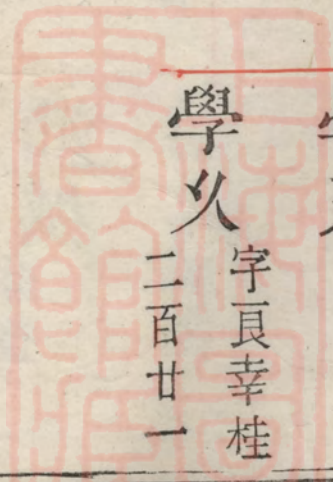 學乆
字艮幸桂
二百廿一